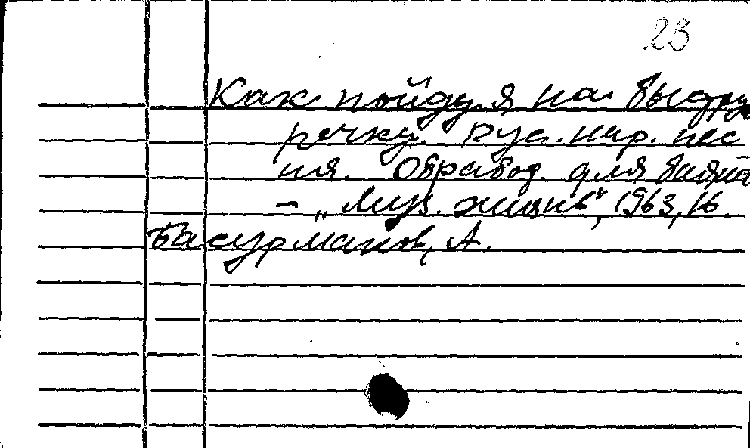 23
Как пойду я на быстру
речку. Рус. нар. пес
ня. Обработ. для баяна
- „Муз. жизнь", 1963, 16.
Басурманов, А.